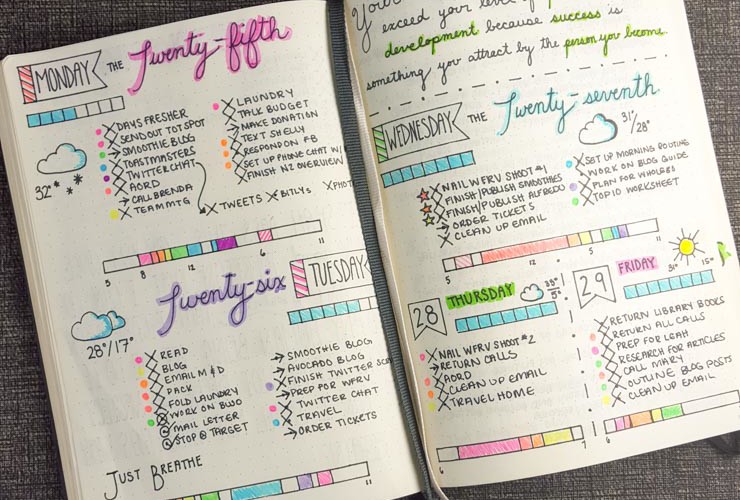 MONDAY THE Twenty-fifth
DAYS FRESHER
SENDOUT TOTSPOT
SMOOTHIE BLOG
TOASTMASTERS
TWITTER CHAT
AORD
CALL BRENDA
TEAM MTG
LAUNDRY
TALK BUDGET
MAKE DONATION
TEXT SHELLY
RESPOND ON FB
SET UP PHONE CHAT W/
FINISH NZ OVERVIEW
32°
TWEETS BITLYS PHOT
5 8 12 6 11
Twenty-six TUESDAY
28°/17°
READ
BLOG
EMAIL M & D
PACK
FOLD LAUNDRY
WORK ON BUJO
MAIL LETTER
STOP @ TARGET
SMOOTHIE BLOG
AVOCADO BLOG
FINISH TWITTER
PREP FOR WFRV
TWITTER CHAT
TRAVEL
ORDER TICKETS
JUST BREATHE
11
exceed your level of
development because success is
something you attract by the person you become.
WEDNESDAY THE Twenty-seventh
31°/28°
NAIL WFRV SHOOT #1
FINISH/PUBLISH SMOOTHIES
FINISH/PUBLISH ALFREDO
ORDER TICKETS
CLEAN UP EMAIL
SET UP MORNING ROUTINE
WORK ON BLOG GUIDE
PLAN FOR WHOLABS
TOP 10 WORKSHEET
5 12 5 11
28 THURSDAY
35°/5°
NAIL WFRV SHOOT #2
RETURN CALLS
AORD
CLEAN UP EMAIL
TRAVEL HOME
6 12 7
29 FRIDAY
31° 15°
RETURN LIBRARY BOOKS
RETURN ALL CALLS
PREP FOR LEAH
RESEARCH FOR ARTICLES
CALL MARY
OUTLINE BLOG POSTS
CLEAN UP EMAIL
6